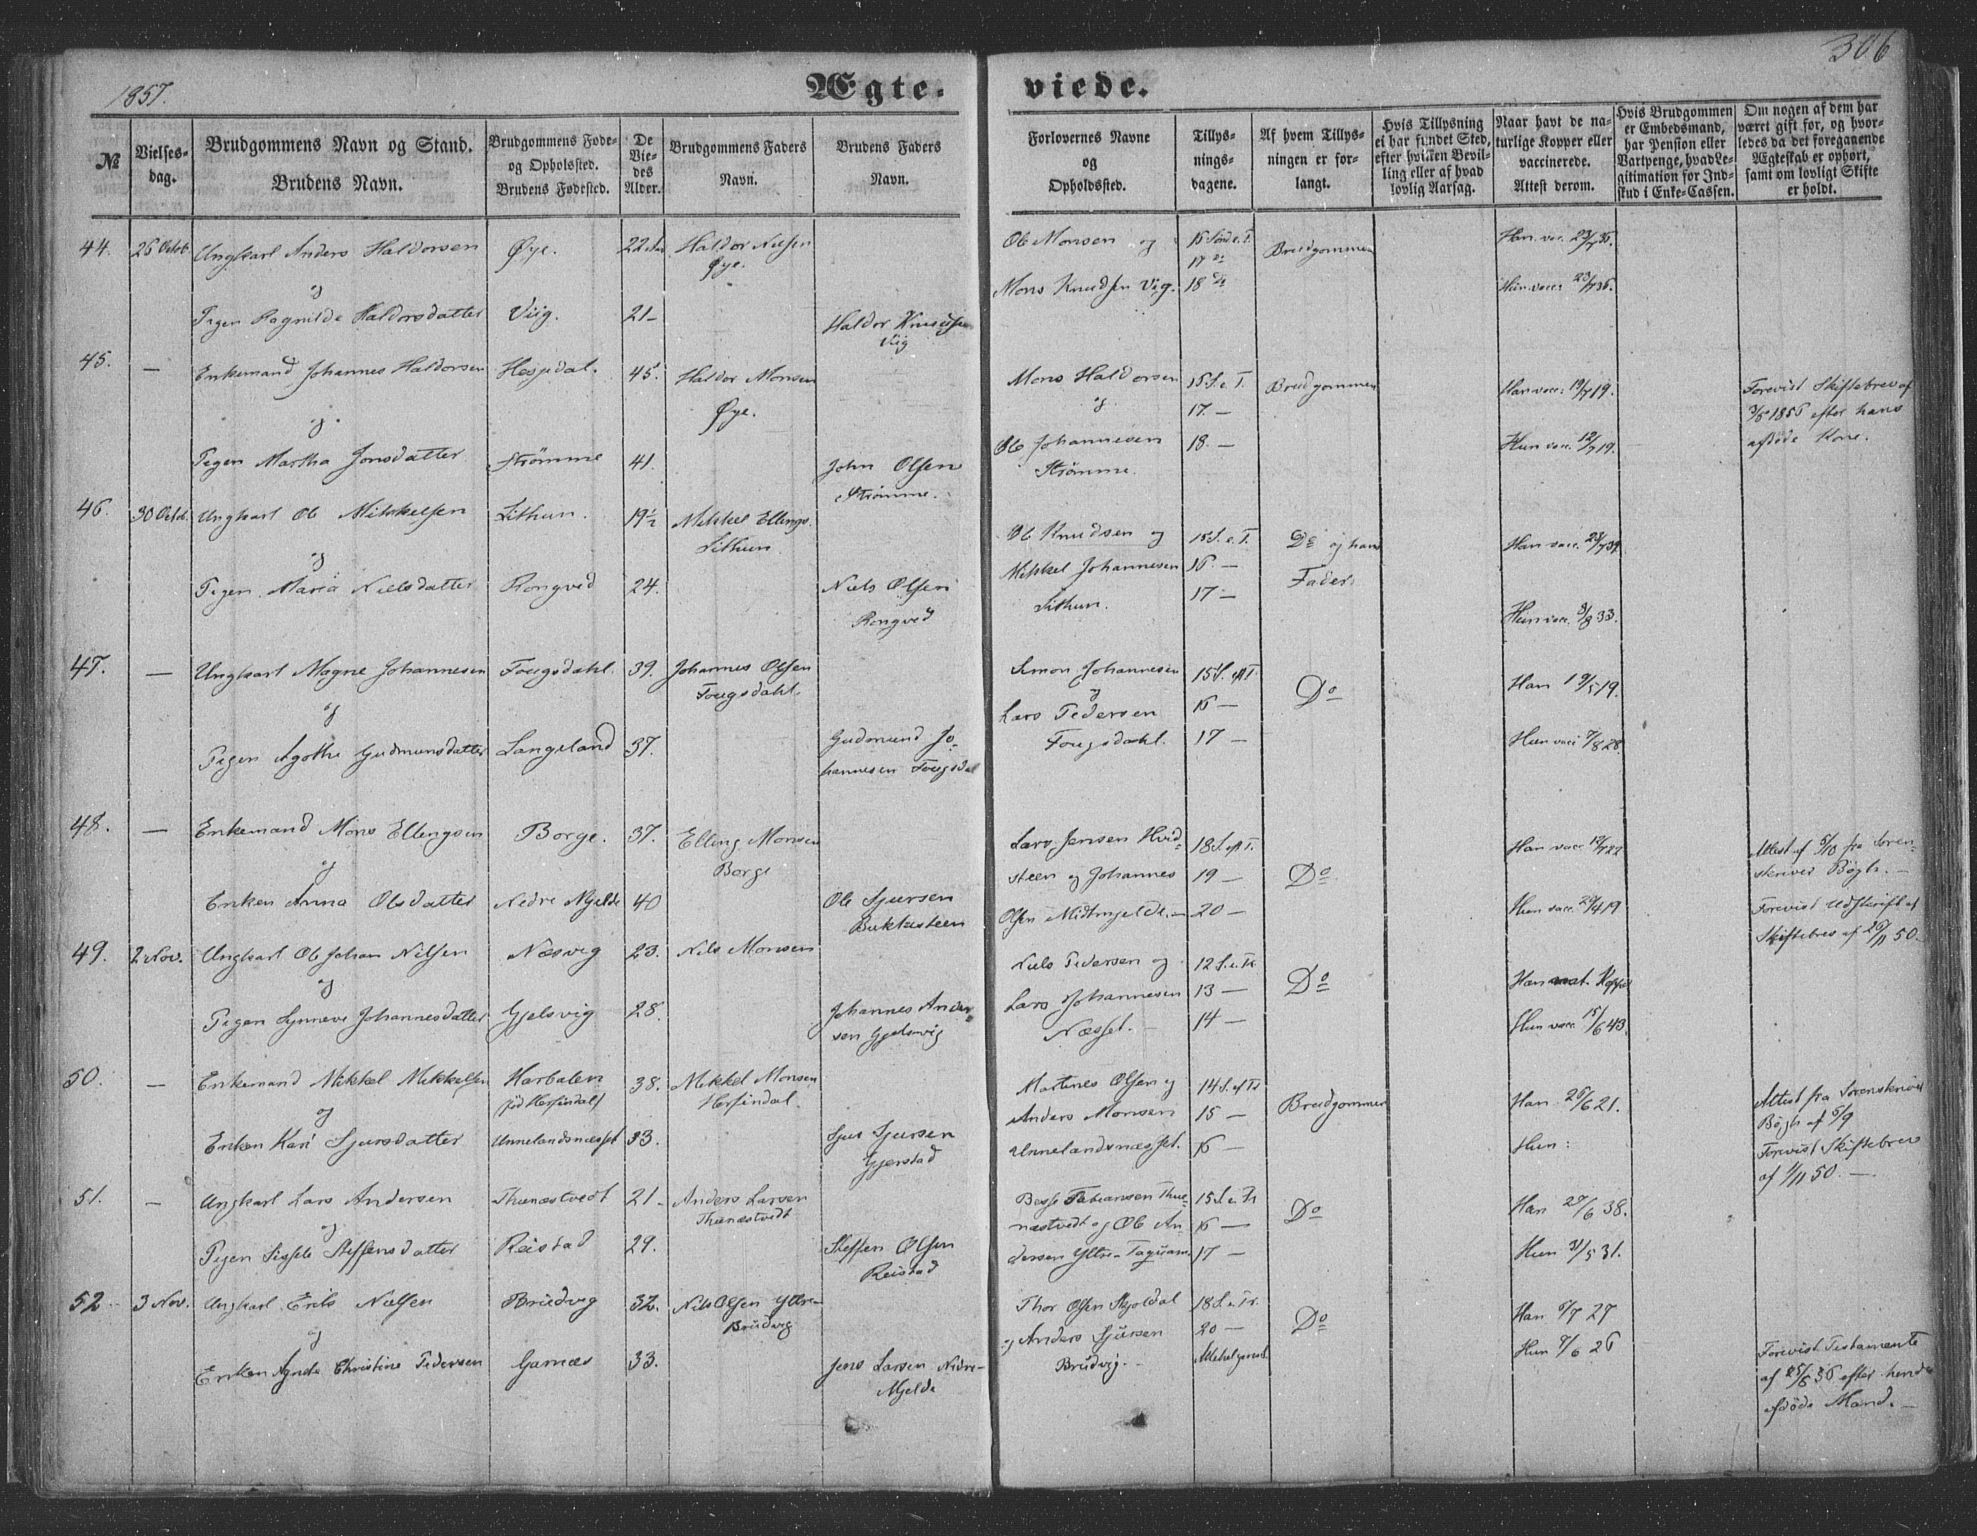 1857.
Ægte.
viede.
306
№
Vielses-
dag.
Brudgommens Navn og Stand.
Brudens Navn.
Brudgommens Føde-
og Opholsfted.
Brudens Fødested.
De
Vie-
des
Alder.
Brudgommens Faders
Navn.
Brudens Faders
Navn.
Forlovernes Navne
og
Opholdssted.
Tillys-
nings-
dagene.
Af hvem Tillys-
ningen er for-
langt.
Hvis Tillysning
ei har fundet Sted,
efter hvilken Bevil-
ling eller af hvad
lovlig Aarsag.
Naar havt de na-
turlige Kopper eller
vaccinerede.
Attest derom.
Hvis Brudgommen
er Embedsmand,
har Pension eller
Vartpenge, hvad Le-
gitimation for Ind-
skud i Enke-Cassen.
Om nogen af dem har
været gift før, og hvor-
ledes da det foregaaende
Ægteskab er ophørt,
samt om lovligt Skifte
er holdt.
44. 26 Octob Ungkarl Anders Haldorsen Øye. 22 Haldor Nilsen
Øye.
Ole Monsen og
Mons Knudsen Vig.
17 do
18 do
Brudgommen
Han vac.
Hun vacc.
og
Pigen Ragnilde Haldorsdatter Viig. 21 Haldor Knudsen
Viig
45. — Enkemand Johannes Haldorsen Hesjedal. 45. Haldor Monsen
Øye.
og
Pigen Martha Jonsdatter Strømme 41. John Olsen
Strømme.
Mons Haldorsen
og
Ole Johannesen
Strømme.
15 S. e. T.
17. —
18 —
Brudgommen
Han vacc. 19/7 19.
Hun vacc. 12/7 19.
Forevist Skiftebrev af
1856 efter hans
afdøde Kone.
46. 30 Octob. Ungkarl Ole Mikkelsen Lithun. 19½ Mikkel Ellings.
Lithun.
og
Pigen Maria Nielsdatter Rongved 24. Niels Olsen
Rongved
Ole Knudsen og
Mikkel Johannesen
Lithun.
15 S. e. T.
16 —
17 —
Do og hans
Fader
Han vacc.
Hun vacc. 33.
47. — Ungkarl Magne Johannesen Fougsdahl. 39. Johannes Olsen
Fougsdahl.
og
Pigen Agothe Gudmunsdatter Langeland 37. Gudmund Jo-
hannesen Fougsdal
Simon Johannesen
og
Lars Pedersen
Fougsdahl.
15 S. eft T.
16 —
17 —
Do
Han
Hun vacc 7/8 28.
48. — Enkemand Mons Ellengsen Borge. 37. Elling Monsen
Borge
og
Enken Anna Olsdatter Nedre Mjelde 40 Ole Sjursen
Bukkesteen
Lars Jensen Hvid-
steen og Johannes
Olsen Midtmjelde.
18 S. eft T.
19 —
20 —
Do
Han vacc
Hun vacc. 4 19
Attest af 5/10 fra Soren-
skriver Bøgh. —
Forevist Udskrift af
Skiftebrev af 50.
49. 2 Nov. Ungkarl Ole Johan Nilsen Næsvig 23. Nils Monsen
og
Pigen Synneve Johannesdatter Gjelsvig 28. Johannes Ander-
sen Gjelsvig
Niels Pedersen og
Lars Johannesen
Næsset. —
12 S. e. Tr.
13 —
14 —
Do
Han nat. Kopper
Hun vacc. 15/6 43.
50. — Enkemand Mikkel Mikkelsen Harbalen
fød Herfindal 38. Mikkel Monsen
Herfindal.
og
Enken Kari Sjursdatter Unnelandsnæsset 33. Sjur Sjursen
Gjerstad
Martines Olsen og
Anders Monsen
Unnelandsnæsset.
14 S. ef Tr
15 —
16 —
Brudgommen
Han 26/6 21.
Hun:
Attest fra Sorenskriver
Bøgh af 5/9
Forevist Skiftebrev
af 1/11 50. —
51. — Ungkarl Lars Andersen Thunæstvedt 21 — Anders Larsen
Thunæstvedt
og
Pigen Sigfele Steffensdatter Reistad 29. Steffen Olsen
Reistad
Besse Fabiansen Thu-
næstvedt og Ole An-
dersen Yttre-Taquam.
15 S. e. Tr
16 —
17 —
Do
Han 27/6 38.
Hun 31/5 31.
52 3 Nov. Ungkarl Erik Nielsen Brudvig 32. Nils Olsen Yttre-
Brudvig
og
Enken Agnete Christine Pedersen Garnæs 33. Jens Larsen Nedre-
Mjelde
Thor Olsen Skjoldal
og Anders Sjursen
Brudvig. —
18 S. e. Tr.
20 —
Do
Han 5/7 27
Hun 7/6 26
Forevist Testamente
af efter hendes
afdøde Mand. —